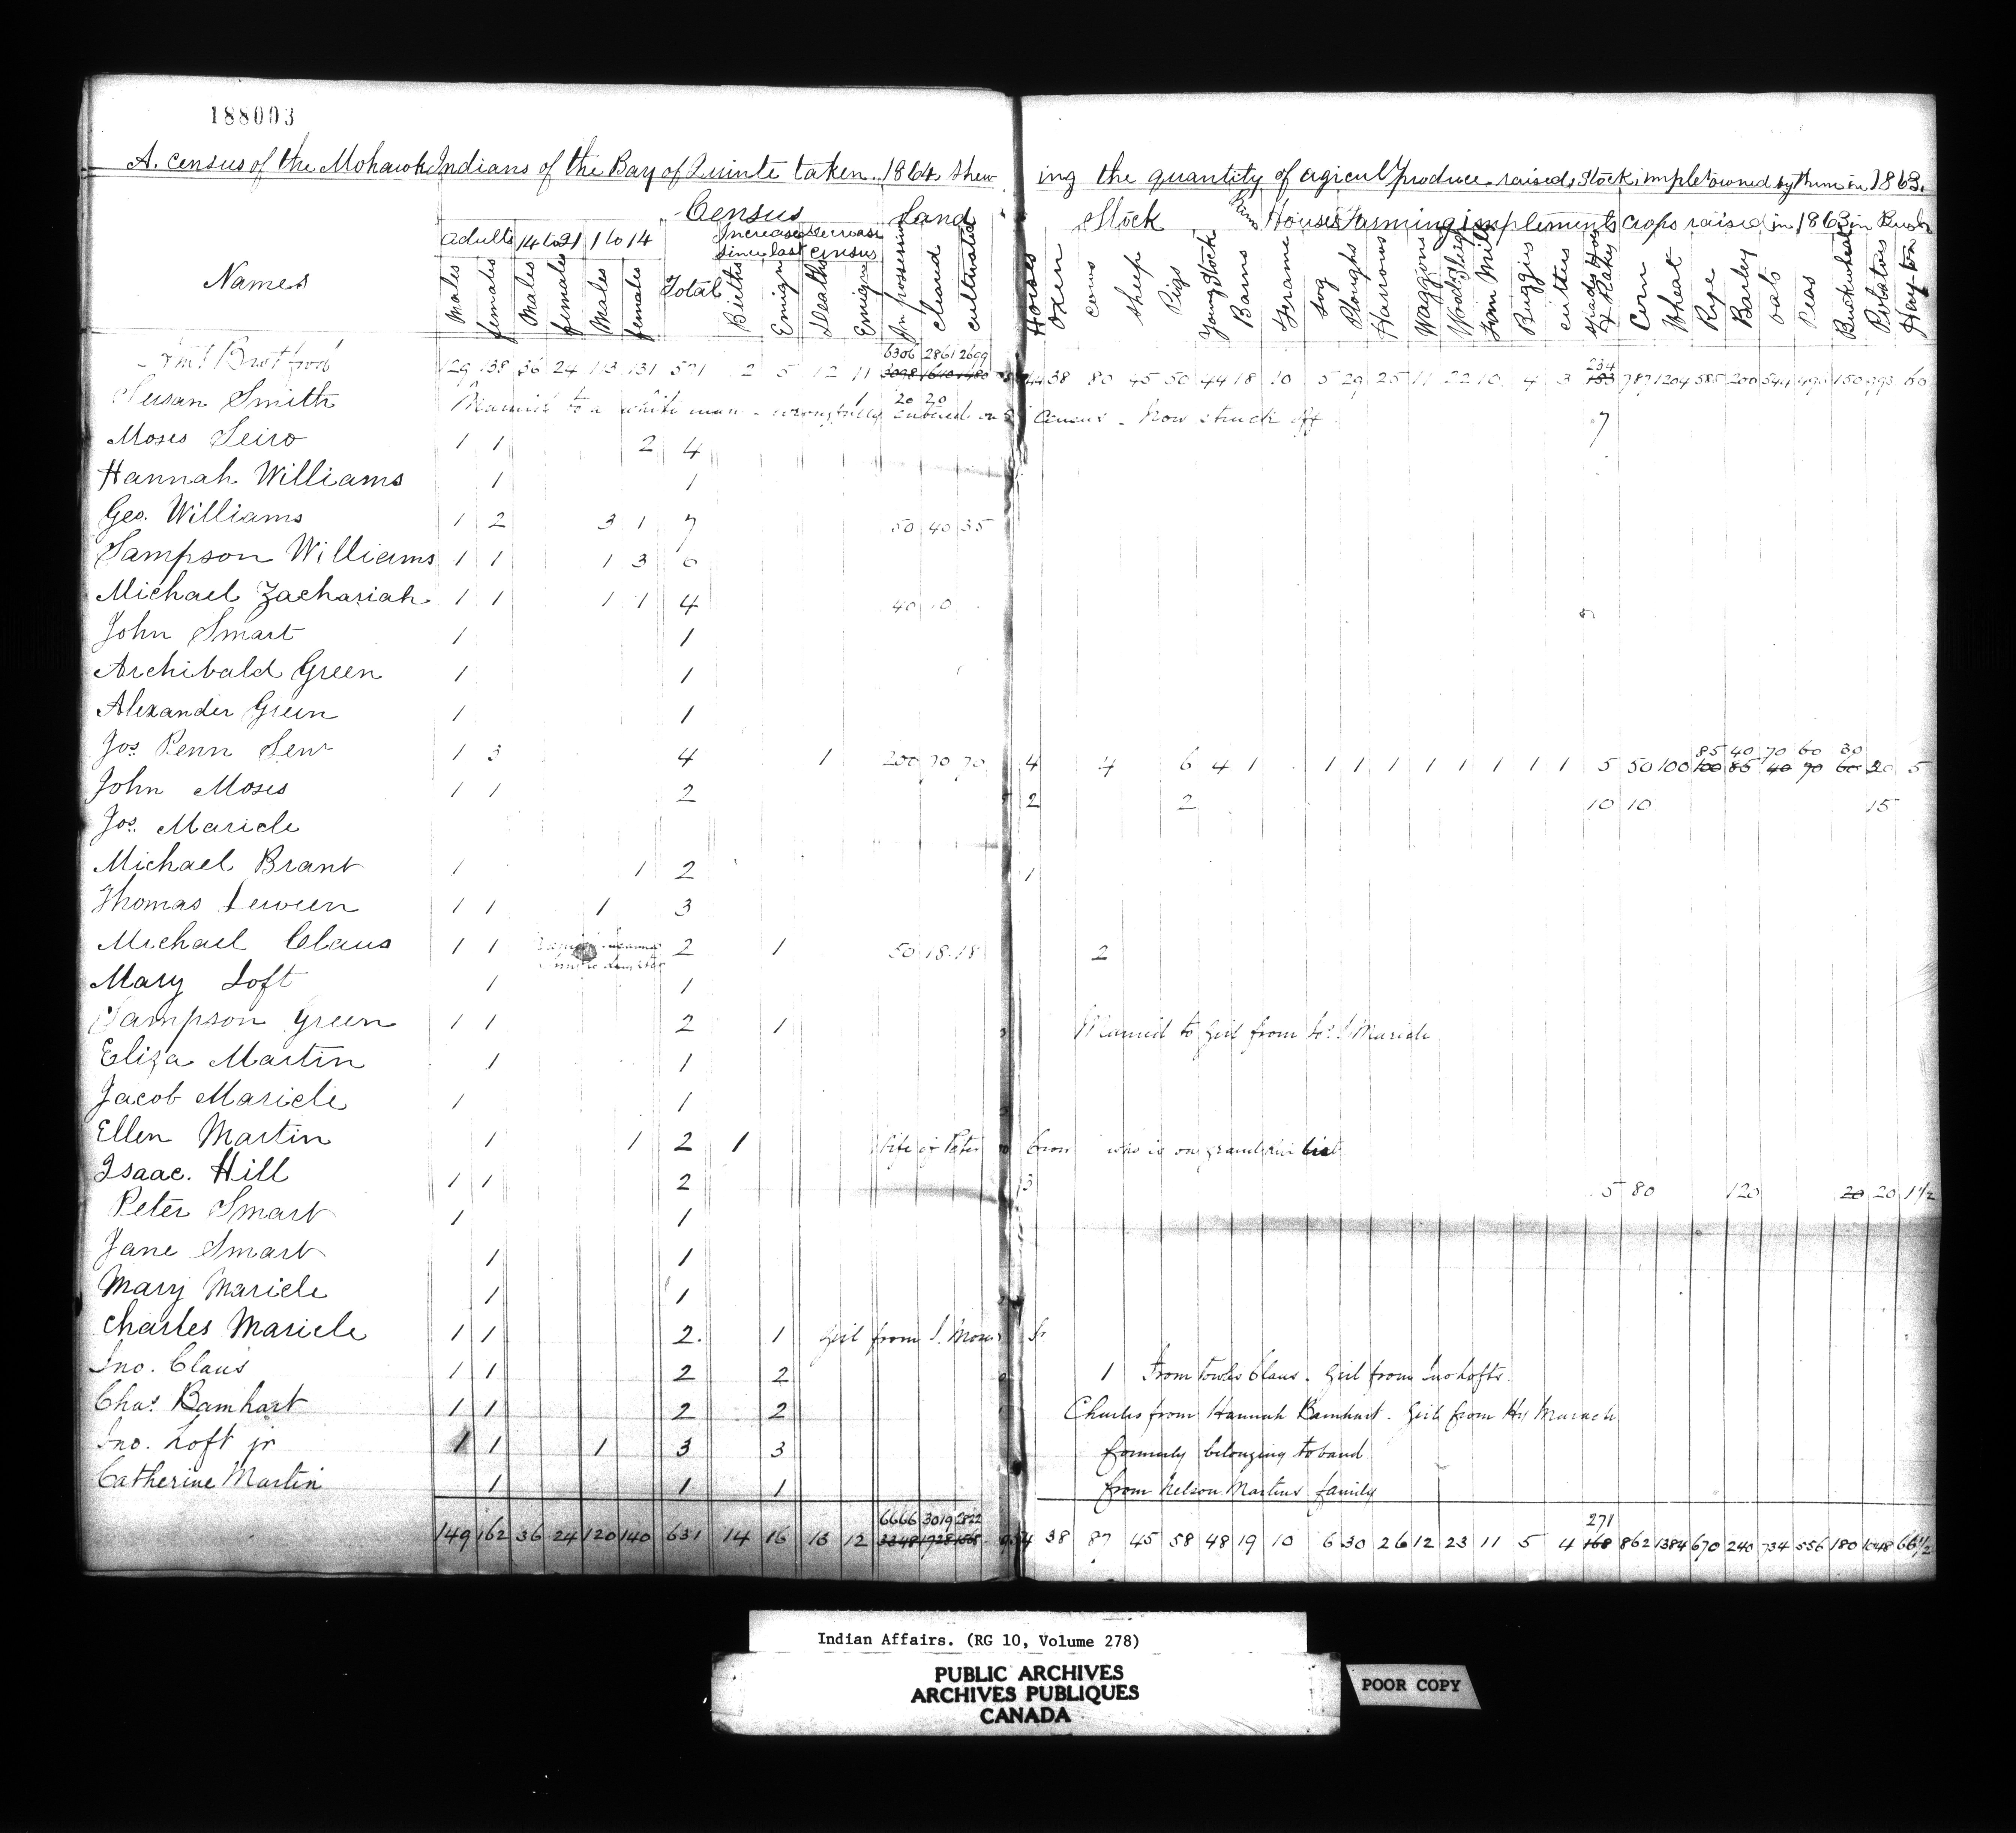 188003
A. census of the Mohawk Indians of the Bay of Quinte taken 1864 shew ing the quantity of agricul produce raised, Stock, implet owned by them in 1863.
Census Land Stock Houses Farming implements Crops raised in 1863 in Bush
Adults 14 to 21 1 to 14 Increase Decrease
since last census
Names Males females Males females Males females Total Births Emign Deaths Emign In possession cleared cultivated Horses Oxen cows Sheep Pigs Young Stock Barns Frame Log Ploughs Harrows Waggons Wood Sleighs Fan Mills Buggies cutters Corn Wheat Rye Barley oats Peas Buckwheat Potatoes Hay ton
6306 2861 2699 234
Amt Brot ford 129 138 36 24 113 131 571 2 5 12 11 3098 1610 1480 38 80 45 50 44 18 10 5 29 25 11 22 10 4 3 153 787 1204 585 200 544 490 150 993 60
20 20
Susan Smith Married to a white man - wrongfully entered on Census - Now struck off 7
Moses Seiro 1 1 2 4
Hannah Williams 1 1
Geo. Williams 1 2 3 1 7 50 40 35
Sampson Williams 1 1 1 3 6
Michael Zachariah 1 1 1 1 4 40 10
John Smart 1 1
Archibald Green 1 1
Alexander Green 1 1
85 40 70 60 30
Jos Penn Senr 1 3 4 1 200 70 70 4 4 6 4 1 1 1 1 1 1 1 1 1 5 50 100 100 85 40 70 60 20 5
John Moses 1 1 2 2 2 10 10 15
Jos. Maricle
Michael Brant 1 1 2 1
Thomas 1 1 1 3
Michael Claus 1 1 2 1 50 18 18 2
Mary Loft 1 1
Sampson Green 1 1 2 1 Married to Girl from Maricle
Eliza Martin 1 1
Jacob Maricle 1 1
Ellen Martin 1 1 2 1 Wife of Peter who is on list
Isaac. Hill 1 1 2 3 5 80 120 20 20 1 1/2
Peter Smart 1 1
Jane Smart 1 1
Mary Maricle 1 1
Charles Maricle 1 1 2. 1 Girl from J. Moses Sr
Jno. Claus 1 1 2 2 1 From Claus. Girl from Jno Lofts
Chas. Barnhart 1 1 2 2 Charles from Hannah Barnhart. Girl from Hy Maracle
Jno. Loft jr 1 1 1 3 3 formerly belonging to band
Catherine Martin 1 1 1 from Nelson Martins family
6666 3019 2822 271
149 162 36 24 120 140 631 14 16 13 12 3348 1728 1568 38 87 45 58 48 19 10 6 30 26 12 23 11 5 4 168 862 1384 670 240 734 556 180 1048 66 1/2
Indian Affairs. (RG 10, Volume 278)
PUBLIC ARCHIVES
ARCHIVES PUBLIQUES
CANADA
POOR COPY